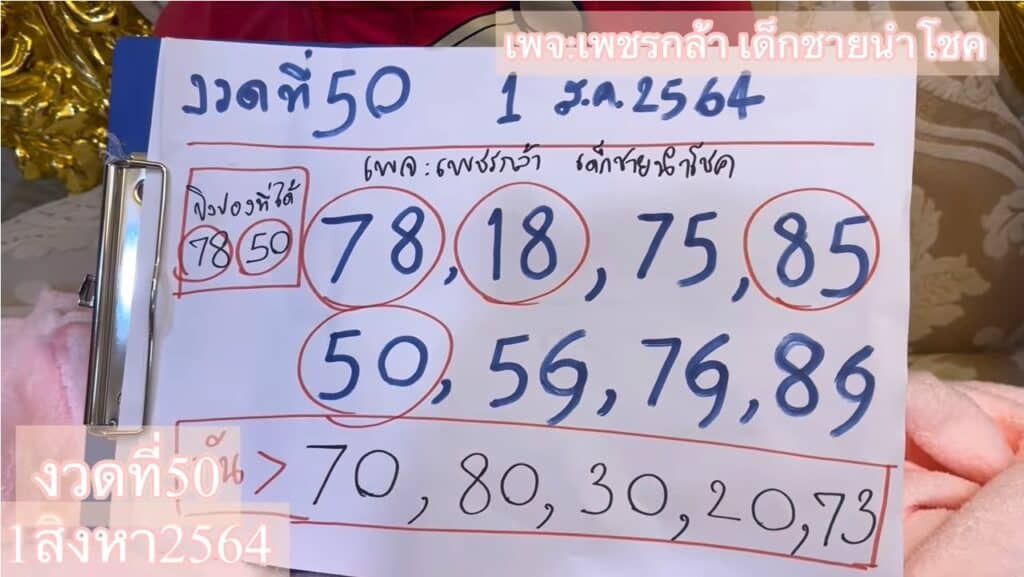 เพจ:เพชรกล้า เด็กชายนำโชค
งวดที่ 50 1 ส.ค. 2564
เพจ : เพชรกล้า เด็กชายนำโชค
ปิงปองที่ได้
78 50
78, 18, 75, 85
50, 59, 79, 89
> 70, 80, 30, 20, 73
งวดที่50
1สิงหา2564